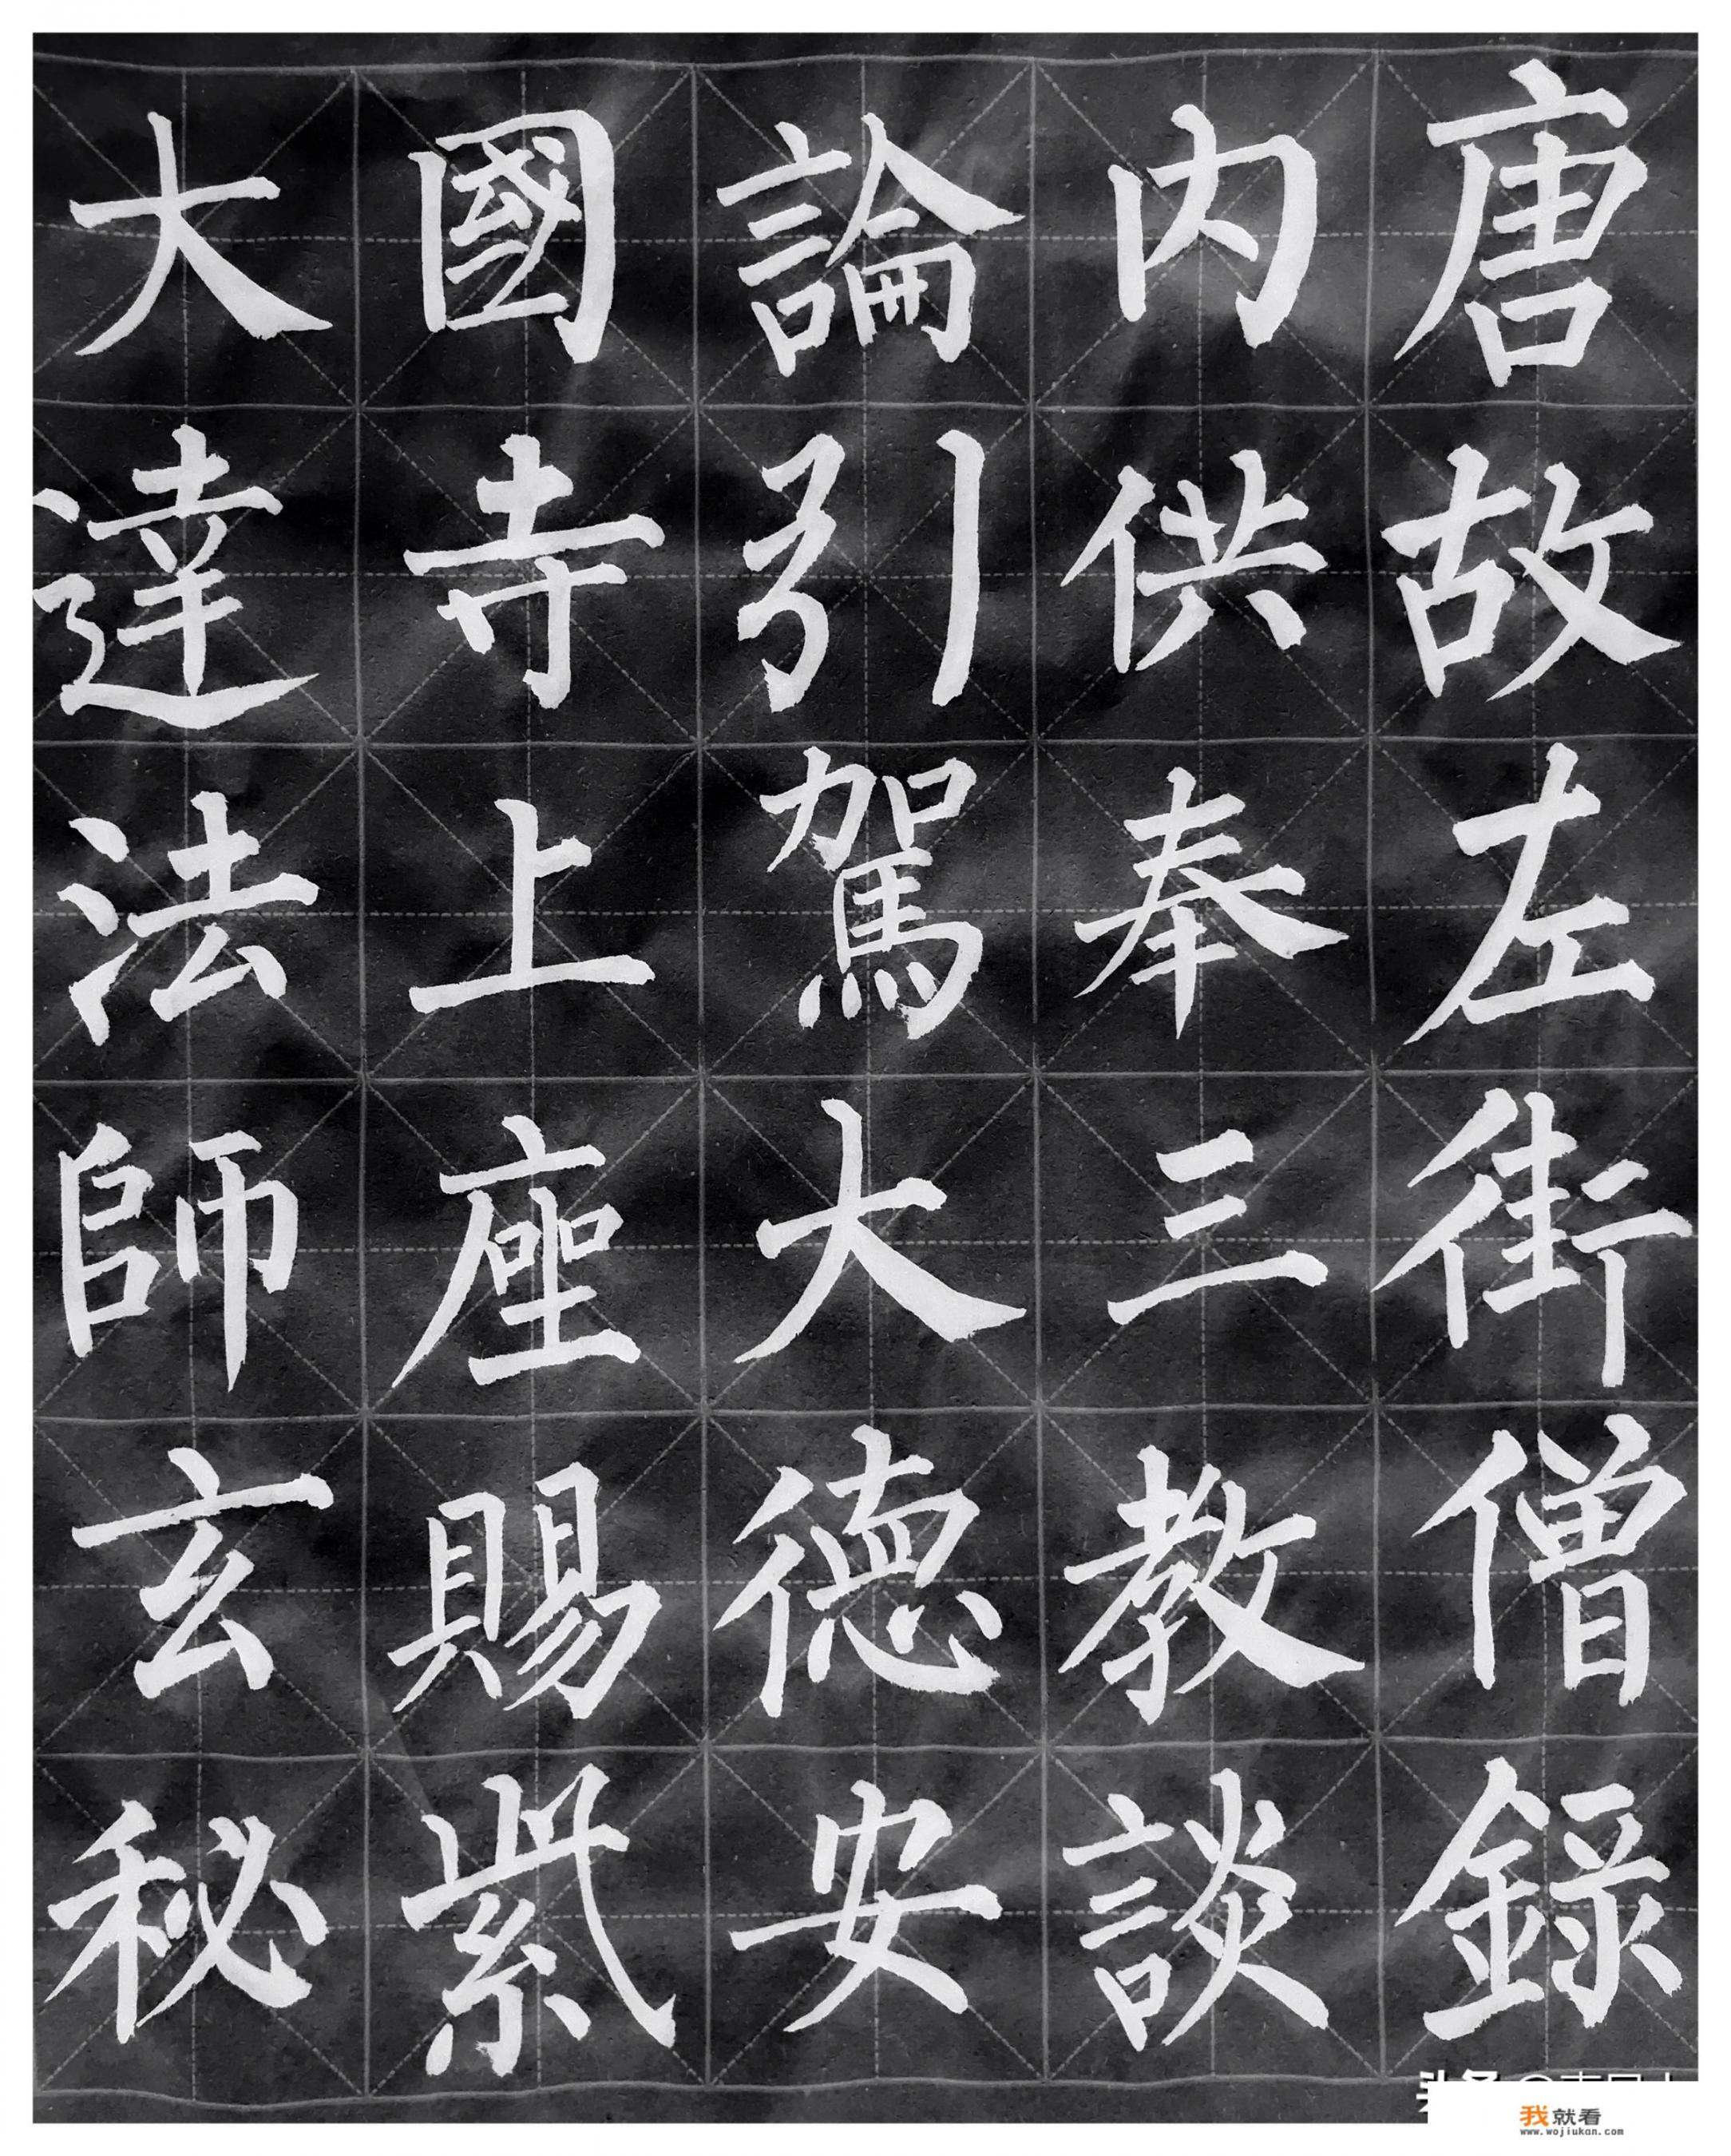 唐故左街僧錄
內供奉三教談
論引駕大德安
國寺上座賜紫
大達法師玄秘
我就看
www.wojiukan.com